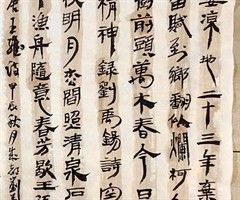 涼地二十三年棄
賦到鄉翻似爛柯
前頭萬木春今日
精神錄劉禹錫詩空
秋明月松間照清泉石
漁舟隨意春芳歇王孫
王維詩甲辰秋月